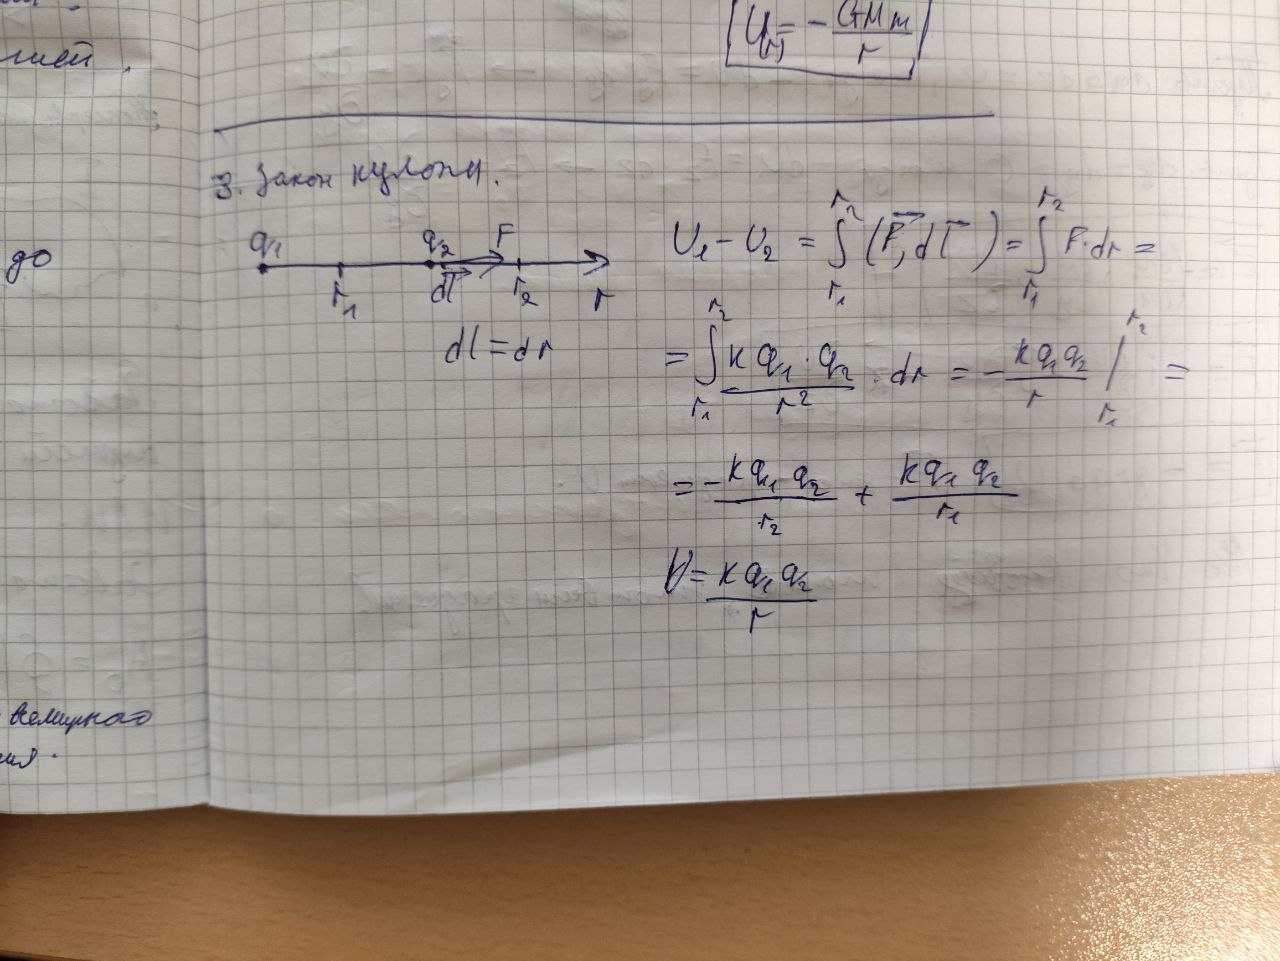 до
всемирного
U(r) = - GMm/r
3. Закон кулона.
q₁ q₂ F
r₁ dl⃗ r₂ r
dl = dr
U₁ - U₂ = ∫_{r₁}^{r₂} (F⃗, dl⃗) = ∫_{r₁}^{r₂} F·dr =
= ∫_{r₁}^{r₂} kq₁·q₂/r² · dr = - kq₁q₂/r |_{r₁}^{r₂} =
= - kq₁q₂/r₂ + kq₁q₂/r₁
U = kq₁q₂/r